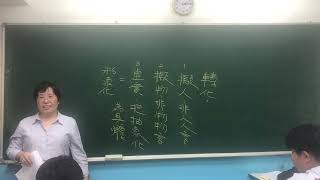 轉化:
1擬人:非人人言
2擬物:非物物言
3虛實:把抽象化
形象化=為具體